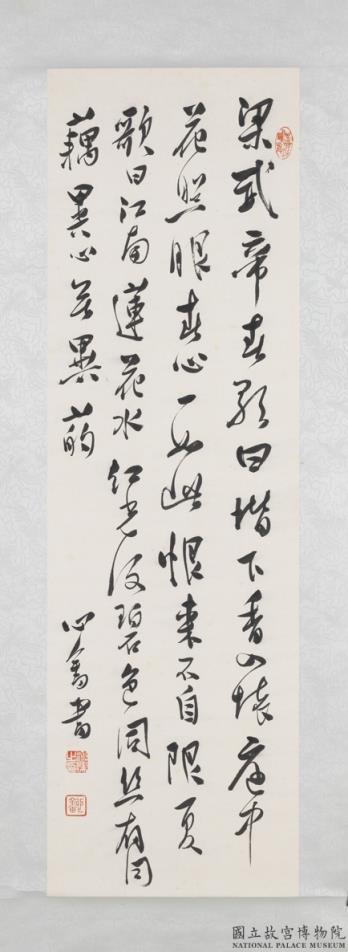 梁武帝春歌曰階下香入懷庭中
花照眼春心一如此恨來不自限夏
歌曰江南蓮花水紅光復碧色同絲有同
藕異心無異菂
心畬書
國立故宮博物院
NATIONAL PALACE MUSEUM